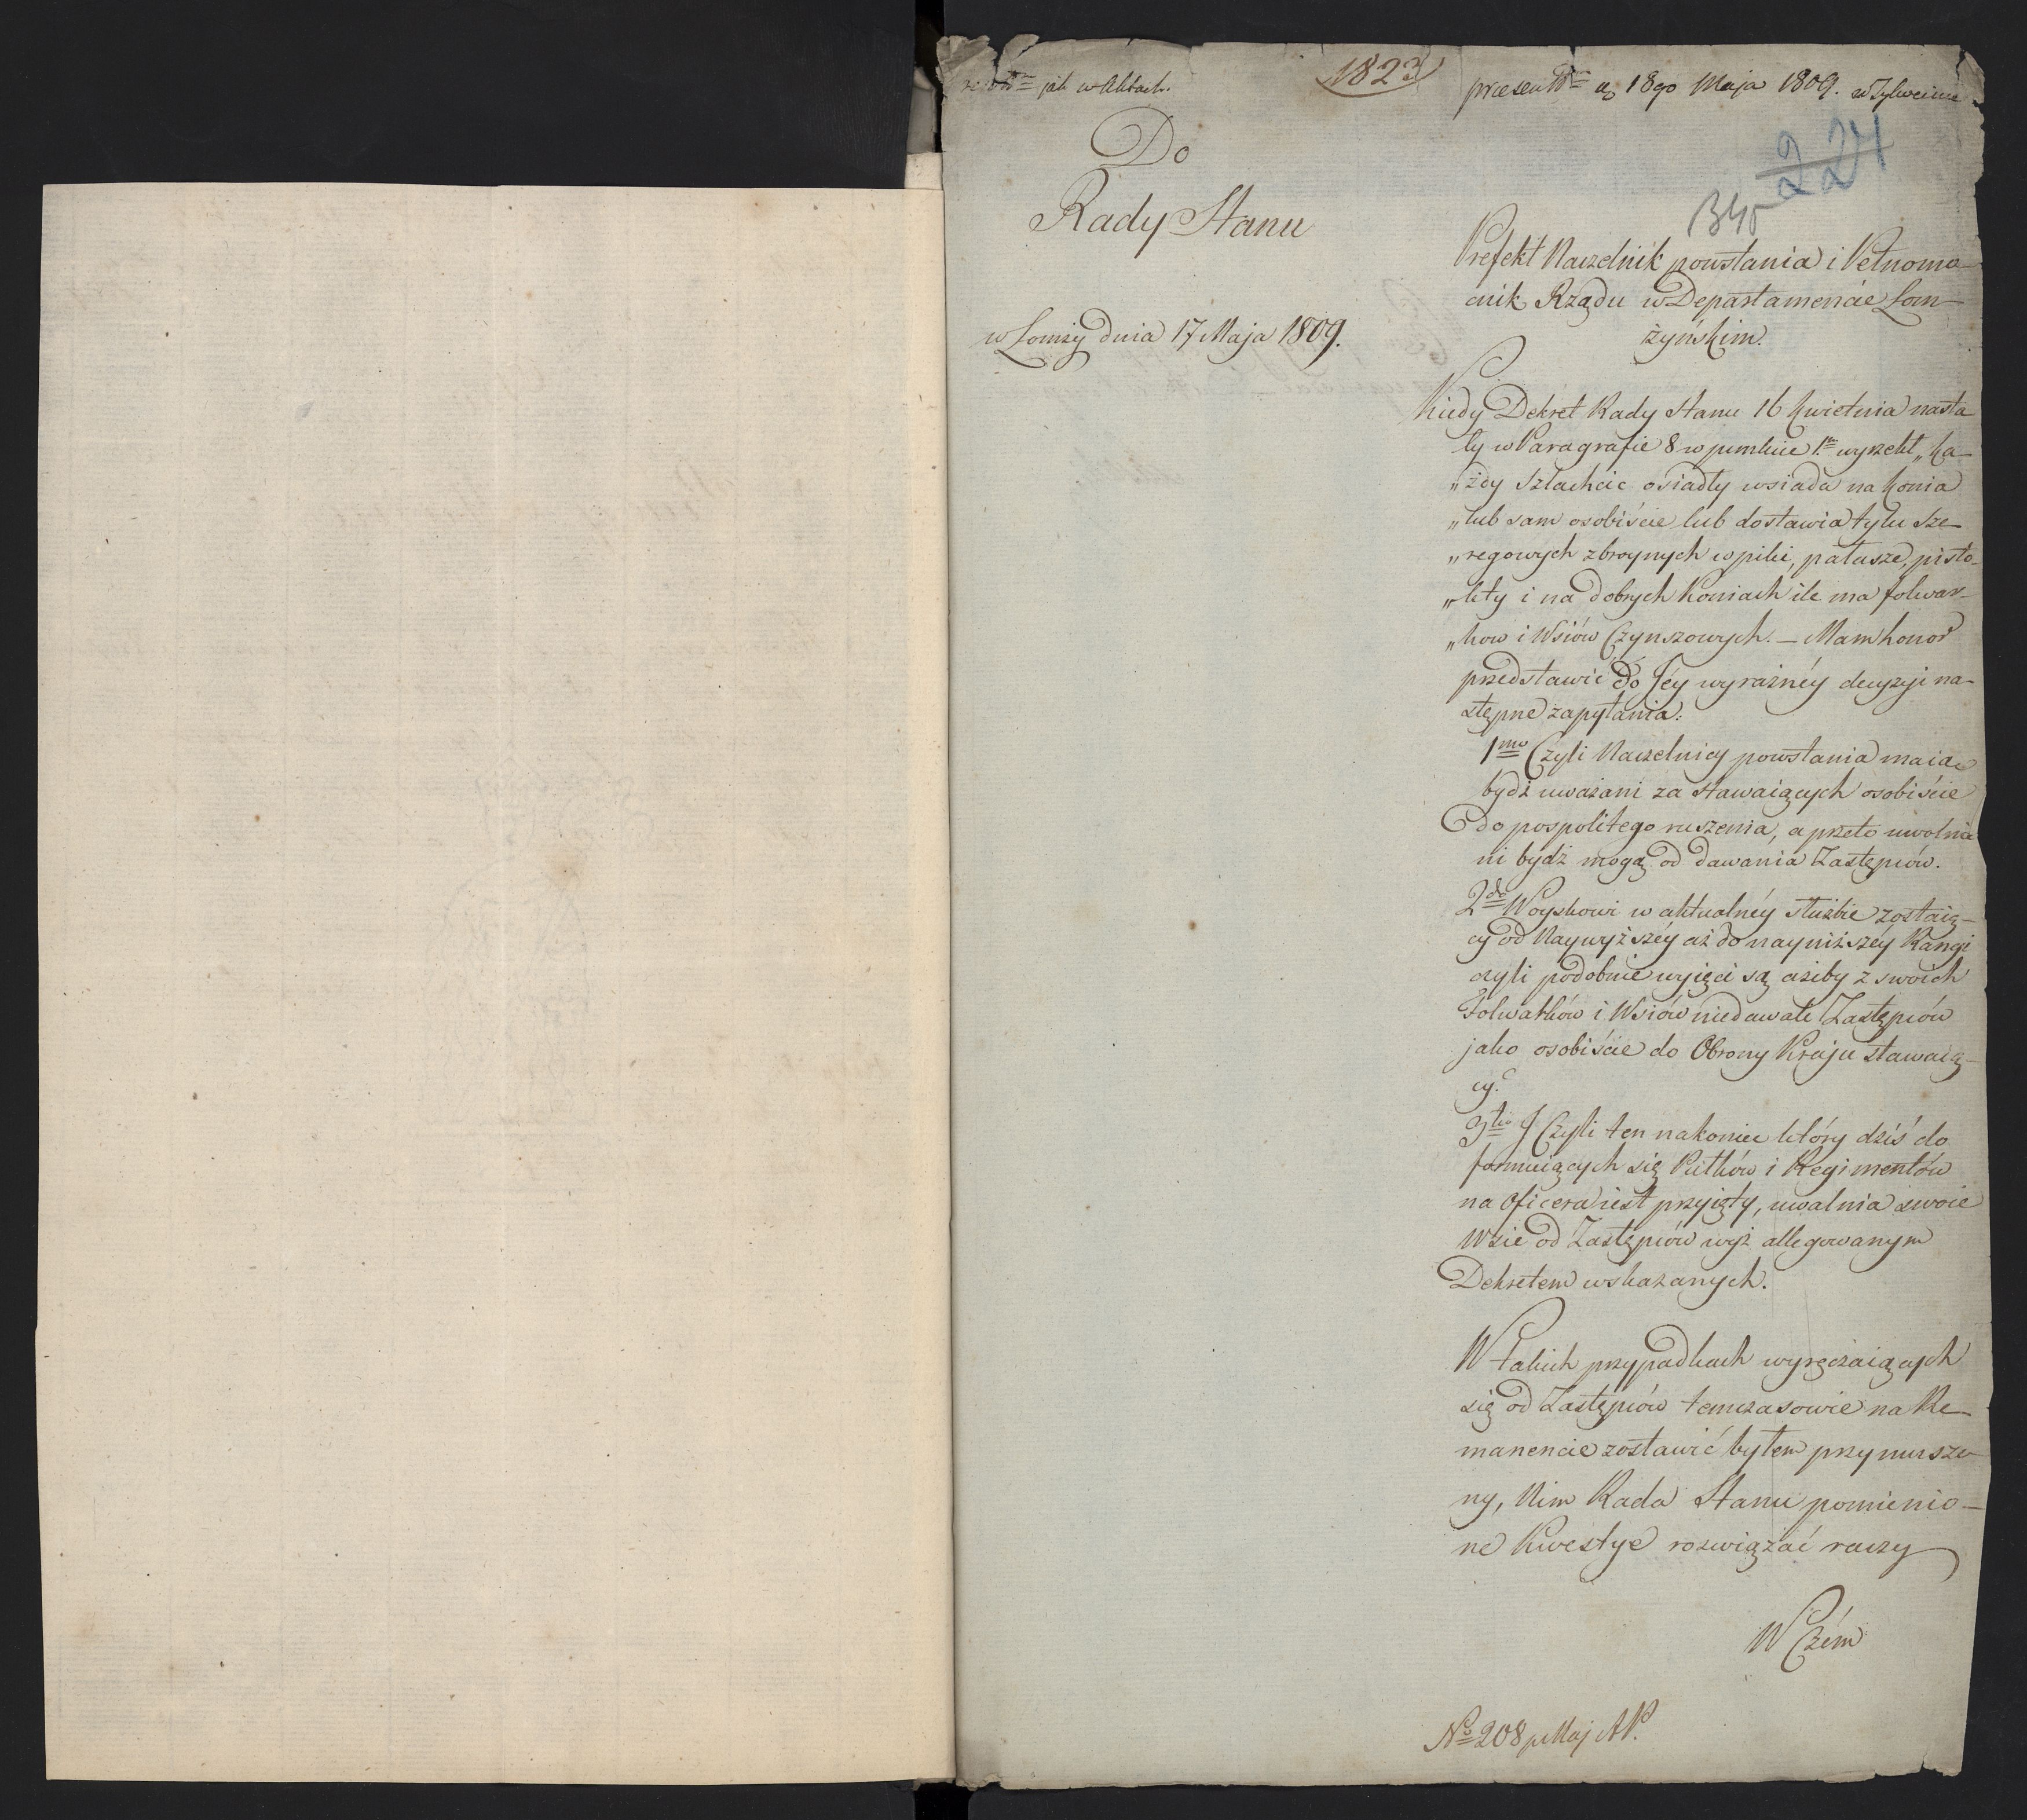 jak w Aktach.
1823
praesent d 18go Maja 1809. w Tykocinie
224
340
Do
Rady Stanu
w Łomży dnia 17 Maja 1809.
Prefekt Naczelnik powstania i Pełnomo-
cnik Rządu w Departamencie Łom-
żyńskim.
Kiedy Dekret Rady Stanu 16 Kwietnia nasta
ły w Paragrafie 8 w punkcie 1m wyrzekł „Ka-
„żdy Szlachcic osiadły wsiada na konia
„lub sam osobiście lub dostawia tylu Sze-
„regowych zbroynych w piki, pałasze, pisto-
„lety i na dobrych Koniach ile ma folwar-
„kow i Wsiów Czynszowych. — Mam honor
przedstawić do Jéy wyraźnéy decyzyi na-
stępne zapytania:
1mo Czyli Naczelnicy powstania maią
bydź uważani za stawaiących osobiście
do pospolitego ruszenia, a przeto uwolnia
ni bydź mogą od dawania Zastępców.
2do Woyskowi w aktualnéy służbie zostaią-
cy od Naywyższéy aż do nayniższéy Rangi
czyli podobnie wyięci są ażeby z swoich
Folwarków i Wsiów niedawali Zastępców
jako osobiście do Obrony Kraju stawaią-
cy.
3tio J Czyli ten nakoniec który dziś do
formuiących się Pułków i Regimentów
na Oficera iest przyięty, uwalnia swoie
Wsie od Zastępców wyż allegowanym
Dekretem wskazanych.
W takich przypadkach wyręczaiących
się od Zastępców temczasowie na Re-
manencie zostawić byłem przymusze-
ny, Nim Rada Stanu pomienio-
ne Kwestye rozwiązać raczy
W Czém
No 208 Maj AP.